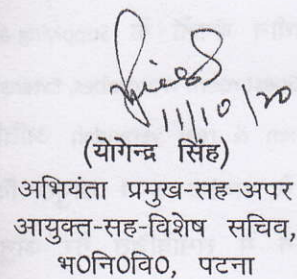 11/10/20
(योगेन्द्र सिंह)
अभियंता प्रमुख-सह-अपर
आयुक्त-सह-विशेष सचिव,
भ0नि0वि0, पटना